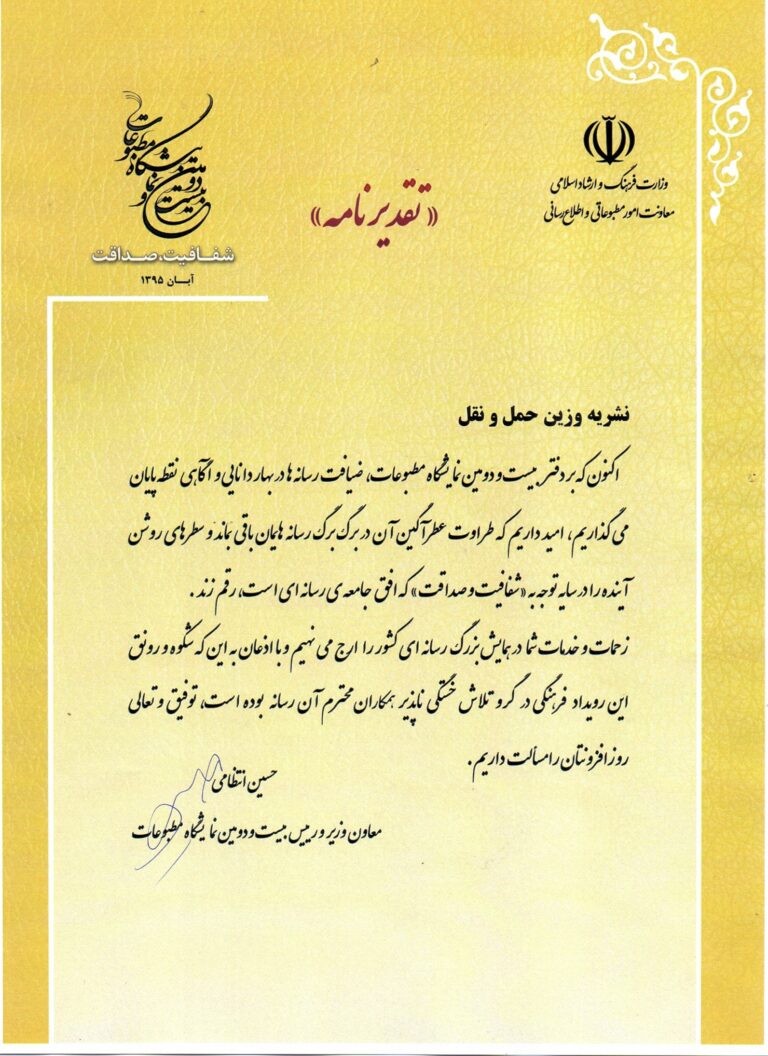 وزارت فرهنگ و ارشاد اسلامی
معاونت امور مطبوعاتی و اطلاع رسانی
«تقدیرنامه»
بیست و دومین نمایشگاه مطبوعات
شفافیت، صداقت
آبان ۱۳۹۵
نشریه وزین حمل و نقل
اکنون که بر دفتر بیست و دومین نمایشگاه مطبوعات، ضیافت رسانه ها در بهار دانایی و آگاهی نقطه پایان
می گذاریم، امید داریم که طراوت عطرآگین آن در برگ برگ رسانه هایمان باقی بماند و سطرهای روشن
آینده را در سایه توجه به «شفافیت و صداقت» که افق جامعه ی رسانه ای است، رقم زند.
زحمات و خدمات شما در همایش بزرگ رسانه ای کشور را ارج می نهیم و با اذعان به این که شکوه و رونق
این رویداد فرهنگی در گرو تلاش خستگی ناپذیر همکاران محترم آن رسانه بوده است، توفیق و تعالی
روزافزونتان را مسألت داریم.
حسین انتظامی
معاون وزیر و رییس بیست و دومین نمایشگاه مطبوعات